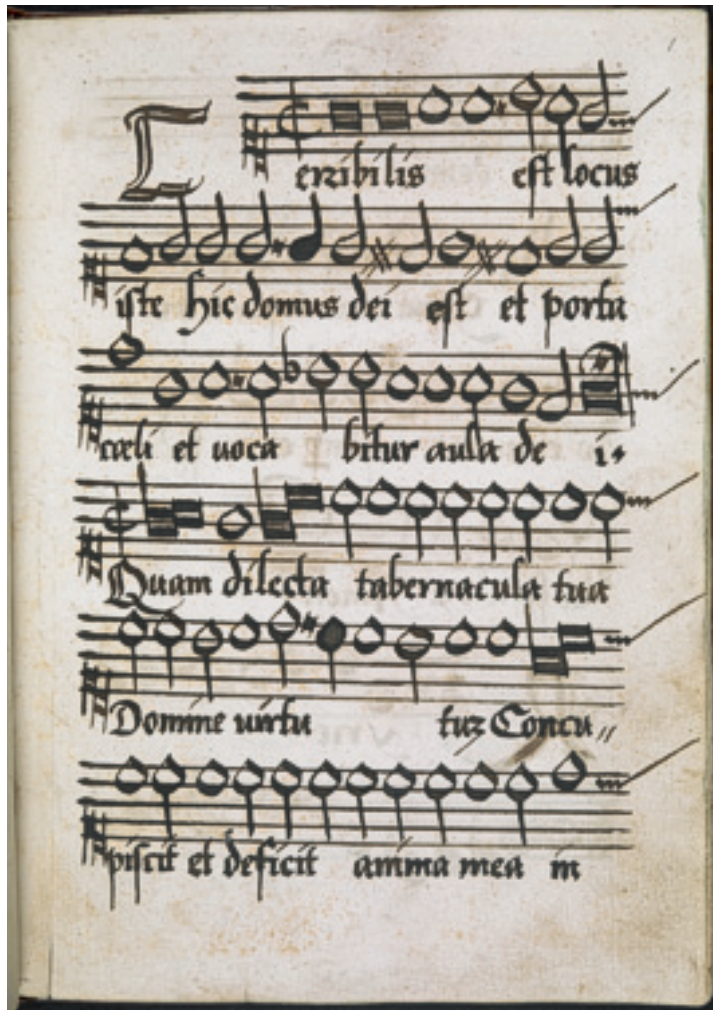 Terribilis est locus
iste hic domus dei est et porta
cœli et uoca bitur aula de i
Quam dilecta tabernacula tua
Domine uirtu tuz Concu
piscit et deficit anima mea in